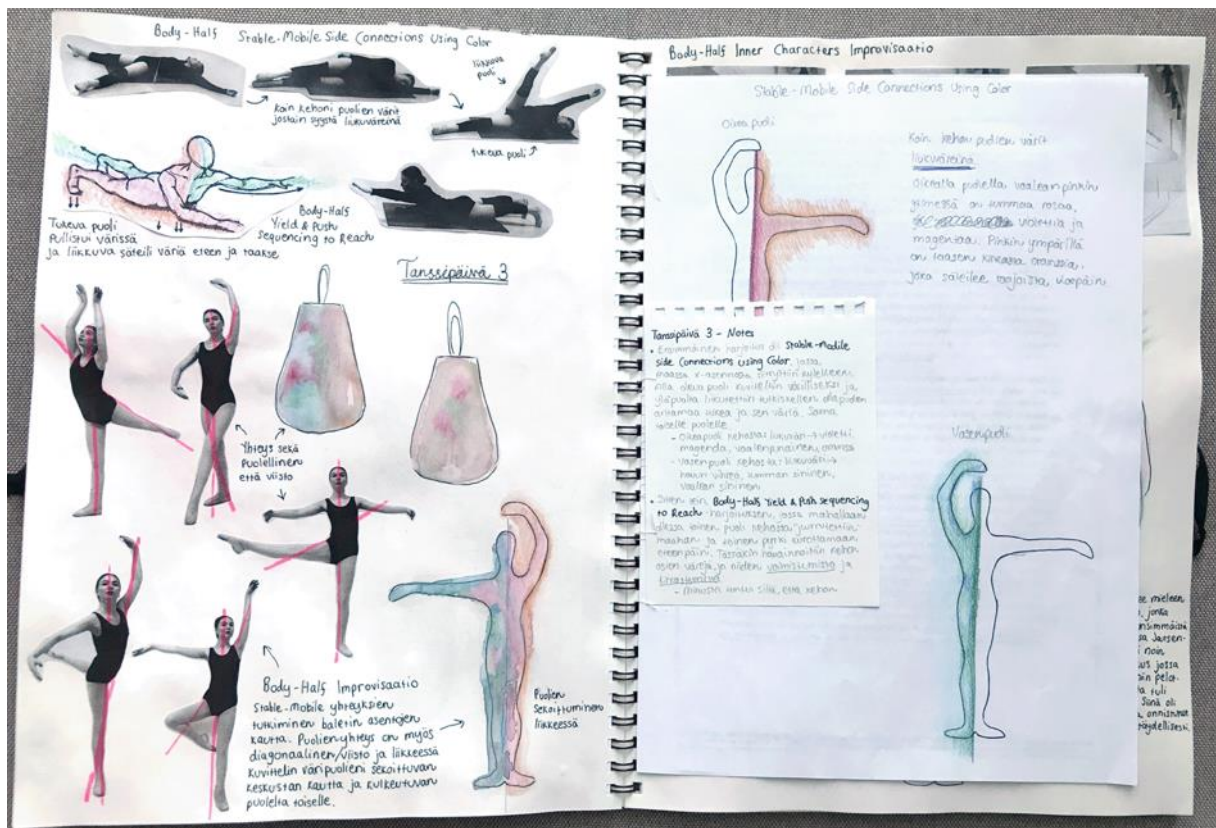 Body-Half Stable-Mobile Side Connections Using Color
liikkuva
puoli
Koin kehoni puolien värit
jostain syystä liukuväreinä
tukeva puoli
Tukeva puoli
Pullistui värissä
ja liikkuva säteili väriä eteen ja taakse
Body-Half
Yield & Push
Sequencing to Reach
Tanssipäivä 3
Yhteys sekä
Puolellinen
että viisto
Body-Half Improvisaatio
Stable-Mobile yhteyksien
tutkiminen baletin asentojen
kautta. Puolien yhteys on myös
diagonaalinen/viisto ja liikkeessä
kuvittelin väripuolieni sekoittuvan
keskustan kautta ja kulkeutuvan
puolelta toiselle.
Puolien
sekoittuminen
liikkeessä
Body-Half Inner Characters Improvisaatio
Stable-Mobile Side Connections Using Color
Oikea puoli
Koin kehon puolien värit
liukuväreinä.
Oikealla puolella vaaleanpinkin
on tummaa roosaa,
violettia ja
magentaa. Pinkin ympärillä
on taasen kirkasta oranssia,
joka säteilee
Tanssipäivä 3 - Notes
• Ensimmäinen harjoitus oli Stable-Mobile
side Connections Using Color, jossa
maassa x-asennossa
oleva puoli kuviteltiin värilliseksi ja
yläpuolta liikutettiin tutkiskellen alapuolen
antamaa tukea ja sen väriä. Sama
toiselle puolelle.
- Oikeapuoli kehosta: liukuväri → violetti
magenda, vaaleanpunainen, oranssi
- Vasenpuoli kehosta: liukuväri →
vihreä, tumman sininen,
vaalean sininen
• Sitten tein Body-Half Yield & Push sequencing
to Reach harjoituksen, jossa mahallaan
ollessa toinen puoli kehosta
maahan ja toinen pyrki kurottamaan
eteenpäin. Tässäkin havainnoitiin kehon
osien värejä ja niiden
- Minusta tuntui siltä, että kehon
Vasenpuoli
mieleen
, jonka
ensimmäisiä
noin
jossa
tuli
Siinä oli
onnistunut
täydellisesti.